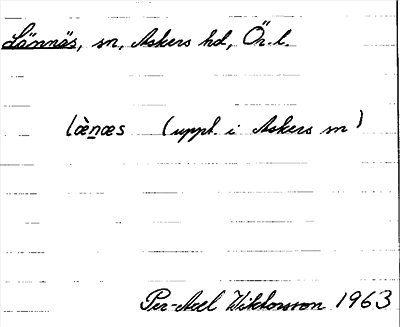 Lännäs, sn, Askers hd, Ör. l.
læ̀næs (uppt. i Askers sn)
Per-Axel Wiktorsson 1963